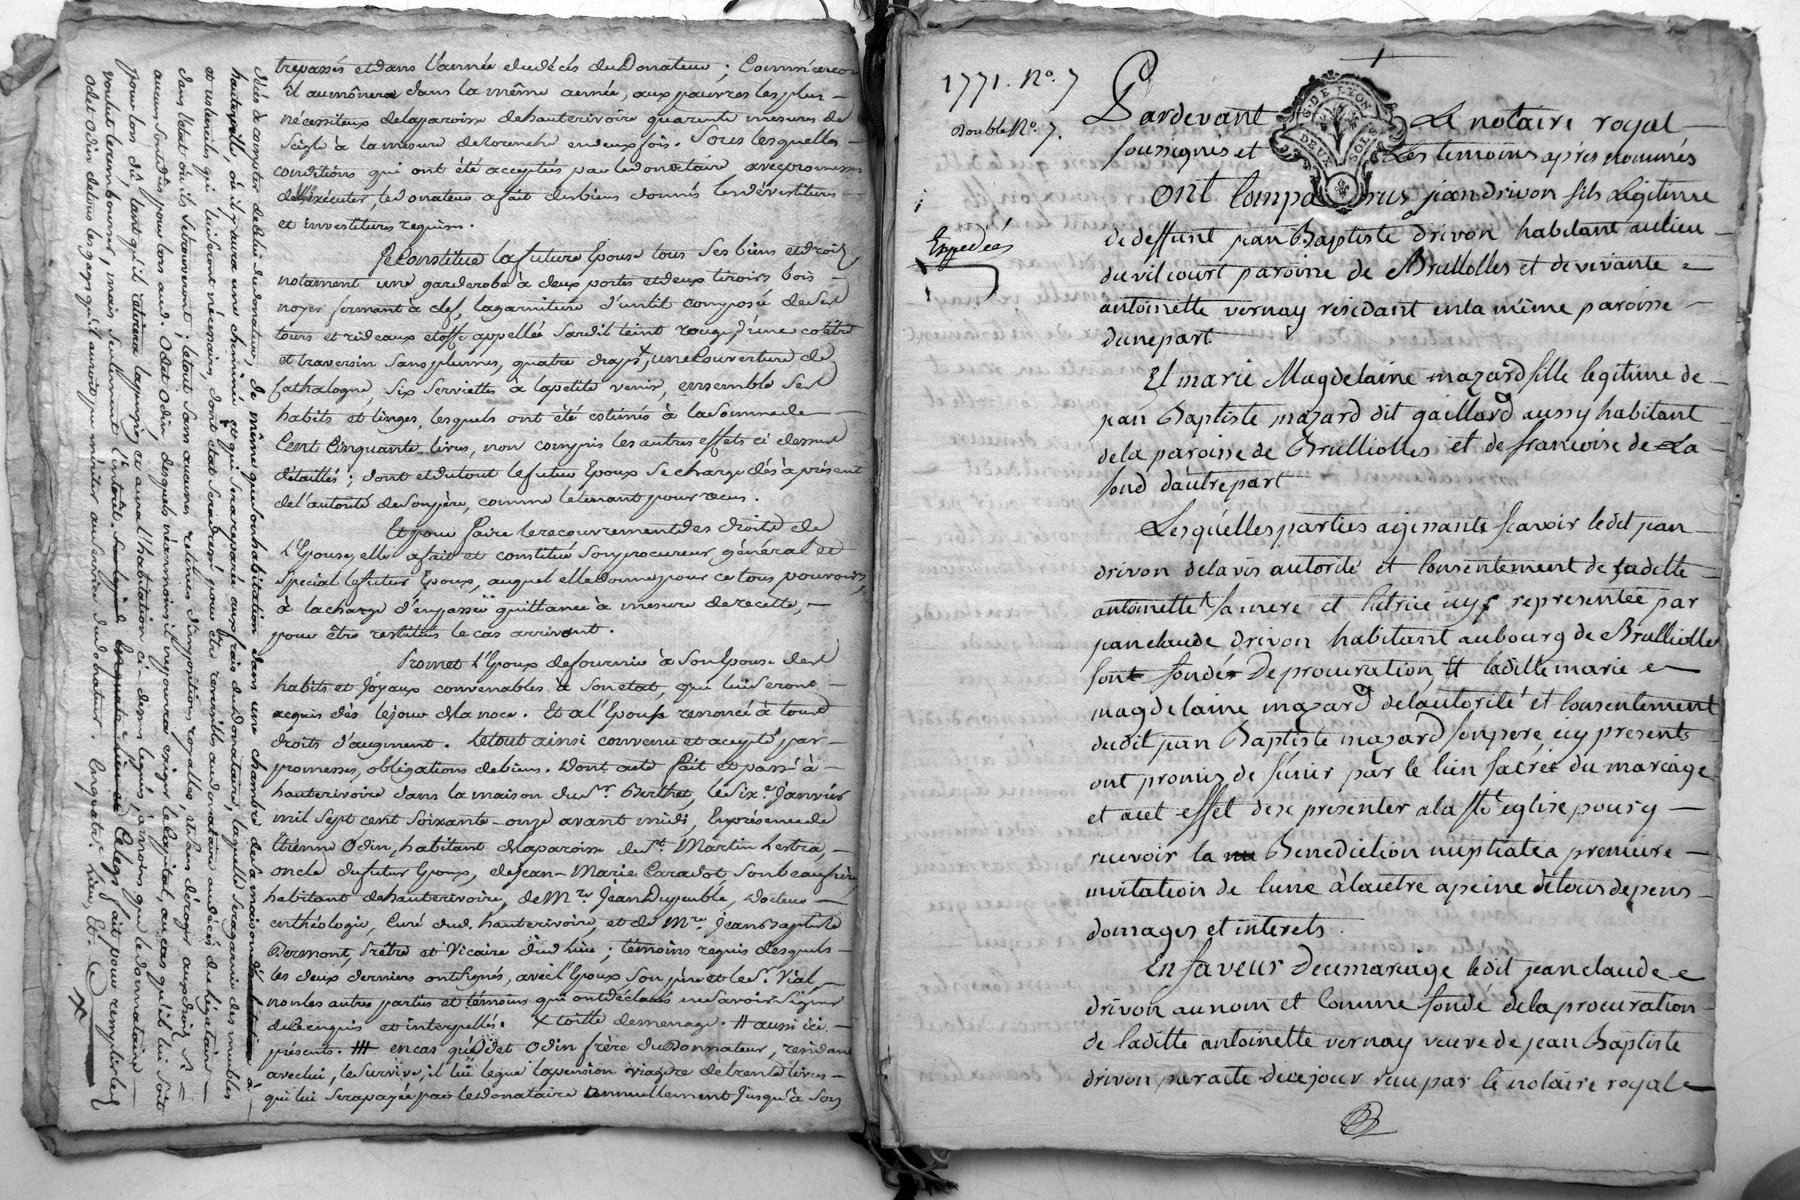 trepassés et dans l'année du décès du Donateur ; Comm'encore
il aumônera dans la même année, aux pauvres les plus
nécessiteux de la paroisse de hauterivoire quarente mesures de
Seigle à la mesure de en deux fois. Sous lesquelles
conditions qui ont été acceptés par le donataire avec promesse
de les exécuter, le donateur a fait des biens donnés les dévestitures
et investitures requises.
Se Constitue la future Epouse tous Ses biens et droits
notament une garderobe à deux portes et deux tiroirs bois
noyer fermant à clef, la garniture d'un lit composé de Ses
tours et rideaux etoffe appellée Sardit teint rouge, d'une coëtre
et traversin Sans plumes, quatre draps x, une Couverture de
Cathalogne, Six Serviettes à la petite venise, ensemble Ses
habits et linges, lesquels ont été estimés à la Somme de
Cent Cinquante livres, non compris les autres effets ci dessus
détaillés ; dont et du tout le futur Epoux Se charge dés à présent
de l'autorité de Son père, comme le tenant pour reçu.
Et pour faire le recouvrement des droits de
l'Epouse, elle a fait et constitué Son procureur général et
Spécial le futur Epoux, auquel elle donne pour ce tous pouvoirs,
à la charge d'en passer quittance à mesure de recette,
pour être restitués le cas arrivant.
Promet l'Epoux de fournir à Son Epouse des
habits et Joyaux convenables à Son etat, qui lui Seront
acquis dès le jour de la noce. Et a l'Epouse renoncé à tous
droits d'augment. Le tout ainsi convenu et accepté par
promesses, obligations de biens. Dont acte fait et passé à
hauterivoire dans la maison du Sr. Berthet, le Six.e Janvier
mil Sept cent Soixante-onze avant midi, En présence de
Etienne Odin, habitant de la paroisse de St. Martin Lestra,
oncle du futur Epoux, de Jean-Marie Caradot Son beaufrère,
habitant de hauterivoire, de Mre. Jean Dujeuble, Docteur
en théologie, Curé dud. hauterivoire, et de Mre. Jean Baptiste
Dormont, Prêtre et Vicaire dud. lieu ; témoins requis desquels
les deux derniers ont Signés, avec l'Epoux Son père et le Sr. Vial,
non les autres parties et témoins qui ont déclarés ne Savoir Signer
de ce enquis et interpellés. x toille de menage. # aussi ici
présents. ## en cas qu'Odet Odin frère du Donnateur, residant
avec lui, le Survive, il lui legue la pension viagere de trente livres
qui lui Sera payée par le Donataire annuellement jusqu'à Son
décès à compter de celui du donateur, de même que Son habitation dans une chambre de la maison à
hauterivoire, où il y aura une cheminée, et qui Sera reparée aux frais du Donataire, laquelle Sera garnie des meubles
et ustenciles qui lui Seront nécessaires, dont etat Sera dressé pour être reversible au donataire au décès du légataire
dans l'état où ils Se trouveront ; le tout Sans aucunes retenues d'impositions royalles, et Sans déroger aux droits Si
aucuns Sont dus pour lors aud. Odet Odin desquels néanmoins il ne pourra exiger le Capital, au cas qu'il lui Soit
pour lors dû, tant qu'il retirera la pension et aura l'habitation ci-dessus leguée, à moins que le donnataire
voulut le rembourser, mais Seulement l'intérêt. Ce legs fait pour remplir led.
Odet Odin de tous les gages qu'il auroit pu mériter au Service du donateur. Lieu, Et.
1771. No. 7
Double No. 7.
Expediées
G. DE LYON
DEUX SOLS
Pardevant Le notaire royal
soussignés et Les temoins aprés nommés
ont Comparus jean drivon fils Légitime
de deffunt jean Baptiste drivon habitant au lieu
du vilcourt paroisse de Brulliolles et de vivante
antoinette vernay residant en la même paroisse
d'une part
Et marie Magdelaine mazard fille legitime de
jean Baptiste mazard dit gaillard aussy habitant
de la paroisse de Brulliolles et de francoise de La
fond d'autre part
Lesquelles parties agissants scavoir ledit jean
drivon de l'avis autorité et Consentement de laditte
antoinette sa mere et tutrice icy representée par
jean claude drivon habitant au bourg de Brulliolles
son fondé De procuration Et laditte marie
magdelaine mazard de l'autorité et Consentement
dudit jean Baptiste mazard son pere icy presents
ont promis de s'unir par le lien sacré du mariage
et a cet effet de se presenter a la ste église pour y
recevoir la Benediction nuptialle a premiere
invitation de l'une à l'autre a peine de tous depens
domages et interets.
En faveur Duu mariage ledit jean claude
drivon au nom et Comme fondé de la procuration
de laditte antoinette vernay veuve de jean Baptiste
drivon par acte de ce jour reçu par le notaire royal